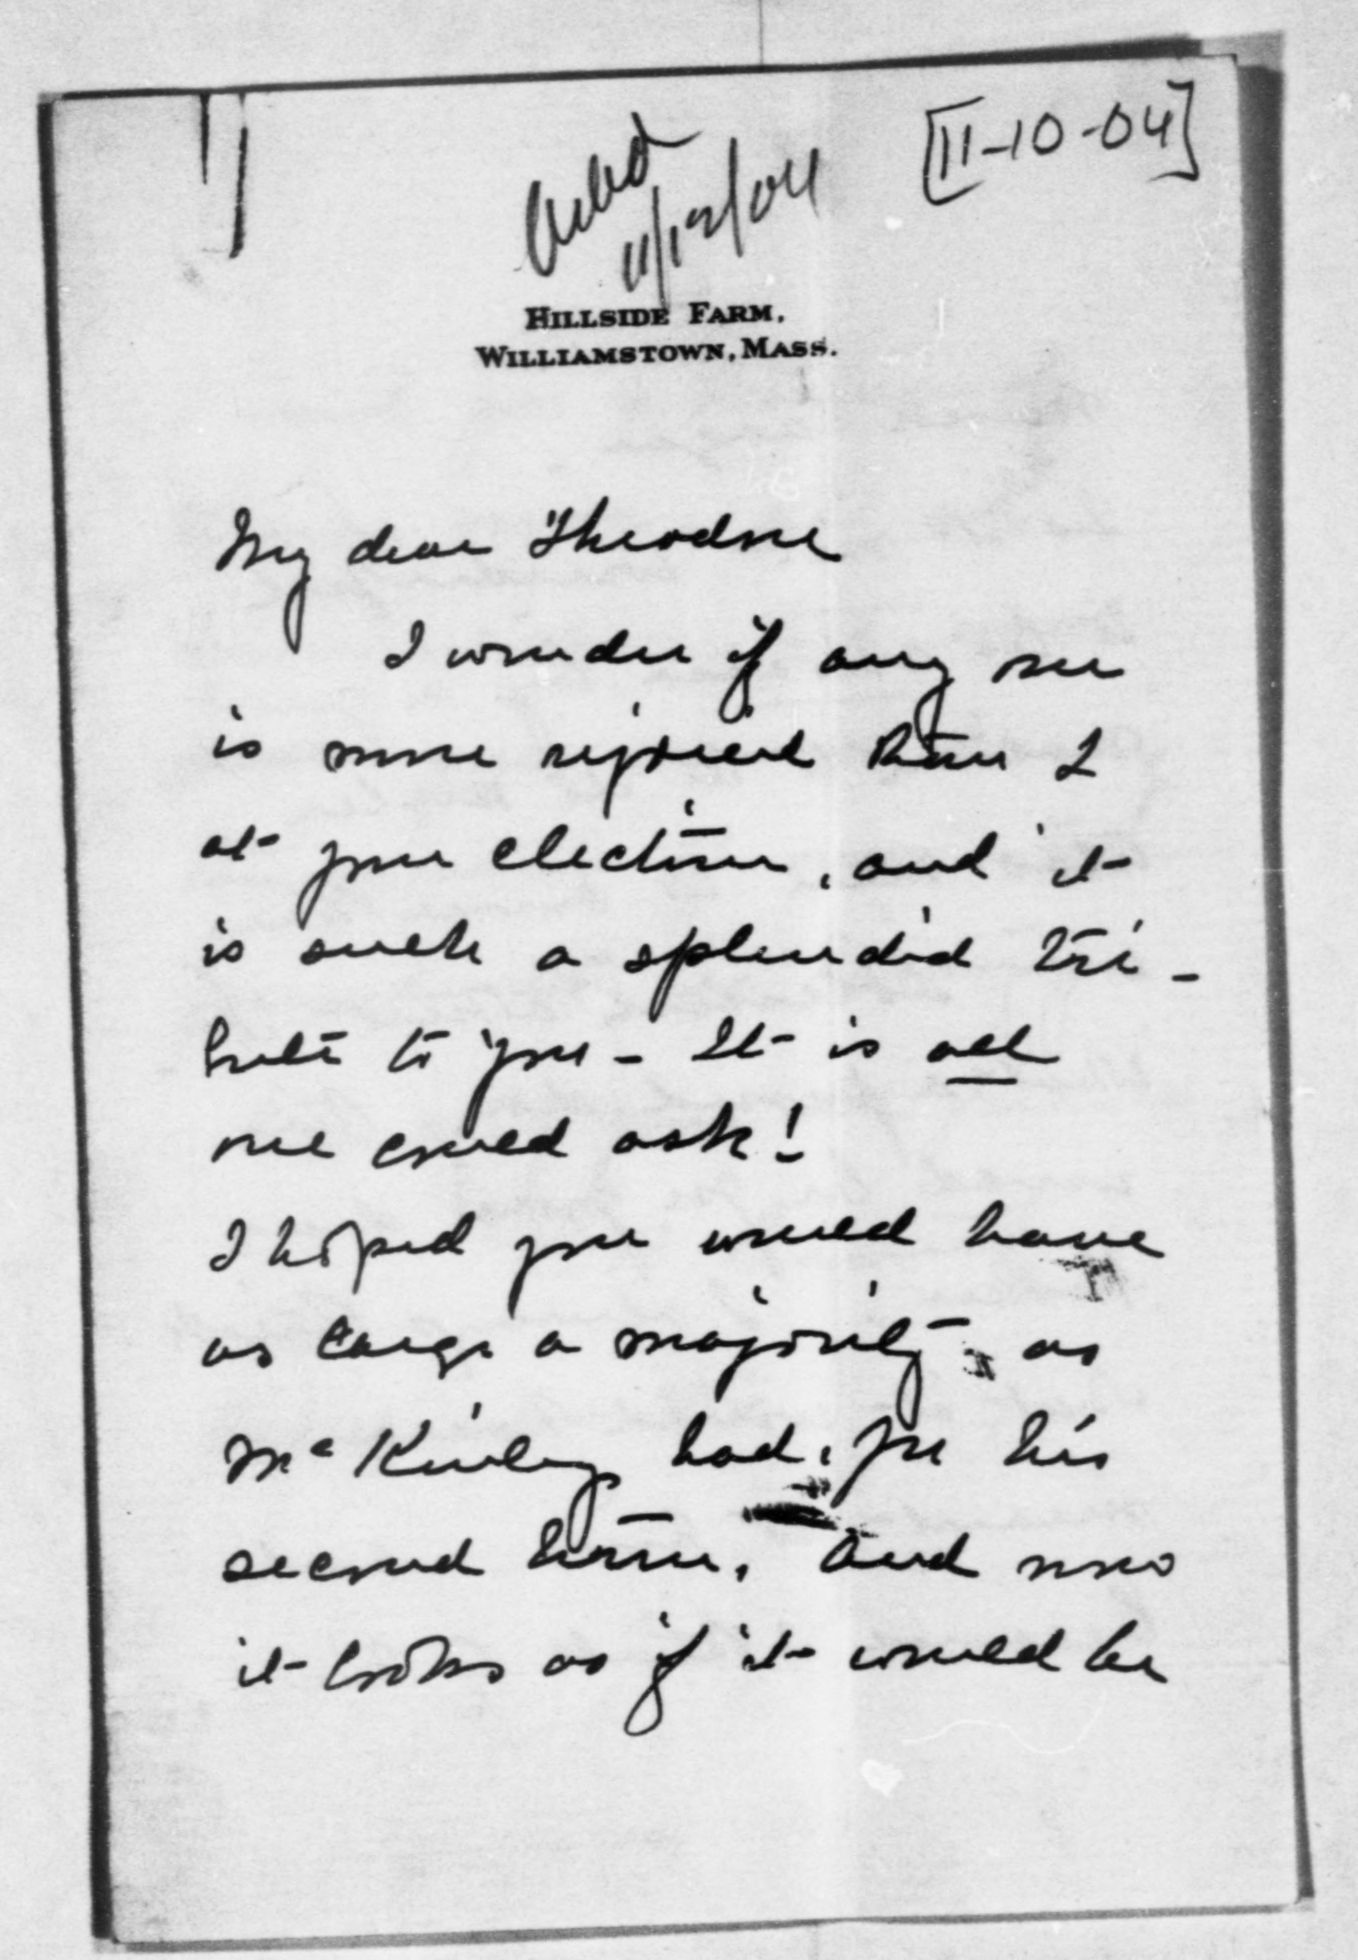 [11-10-04]
Ackd
11/12/04
HILLSIDE FARM,
WILLIAMSTOWN, MASS.
My dear Theodore
I wonder if any one
is more rejoiced than I
at your election, and it
is such a splendid tri-
bute to you - It is all
one could ask!
I hoped you would have
as large a majority as
McKinley had, for his
second term, and now
it looks as if it would be